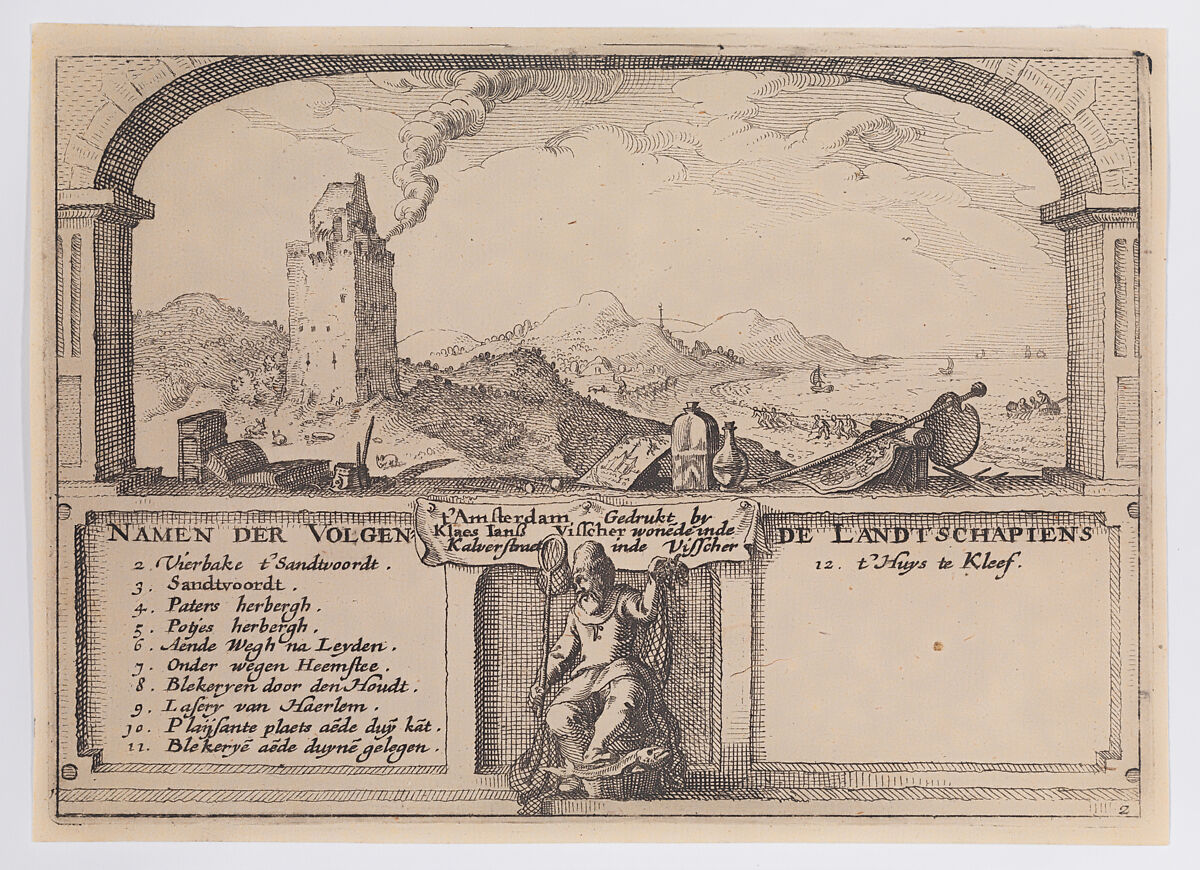 t'Amsterdam Gedrukt by
Klaes Ianß Visscher wonēde inde
Kalverstraet inde Visscher
NAMEN DER VOLGEN
DE LANDTSCHAPIENS
2. Vierbake t'Sandtvoordt.
3. Sandtvoordt.
4. Paters herbergh.
5. Potjes herbergh.
6. Aende Wegh na Leyden.
7. Onder wegen Heemstee.
8. Blekeryen door den Houdt.
9. Lasery van Haerlem.
10. Plaijsante plaets aēde duȳ kāt.
11. Blekeryē aēde duynē gelegen.
12. t'Huys te Kleef.
2